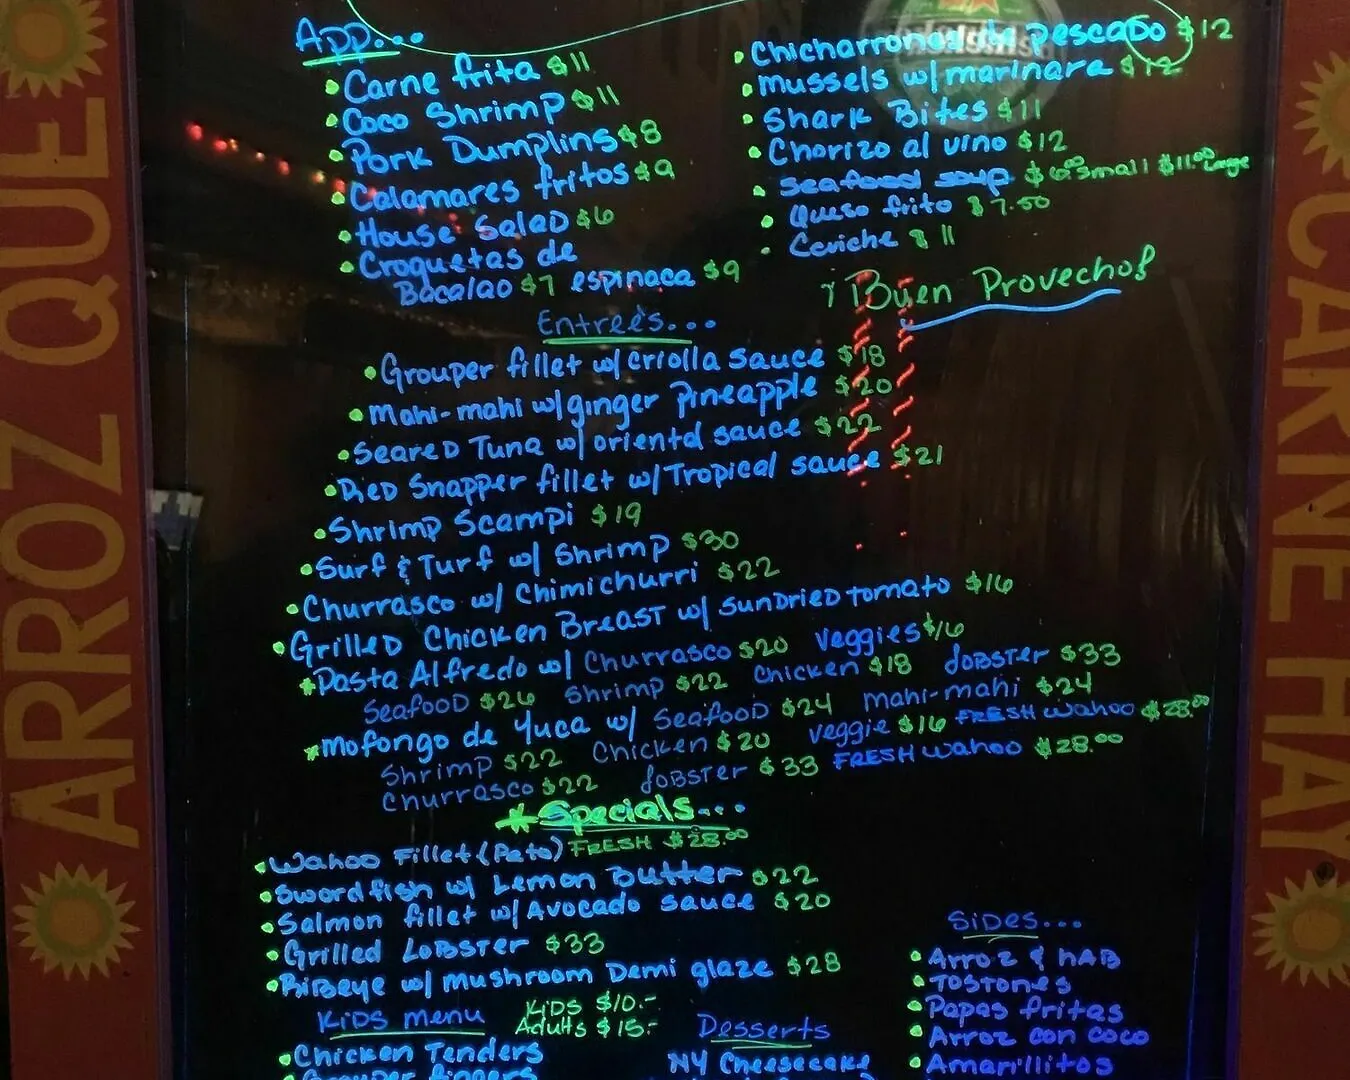 ARROZ QUE
CARNE HAY
App...
Carne frita $11
Coco Shrimp $11
Pork Dumplins $8
Calamares fritos $9
House Salad $6
Croquetas de
Bacalao $7 espinaca $9
Chicharrones de pescado $12
Mussels w/ marinara $12
Shark Bites $11
Chorizo al vino $12
Seafood soup $6.00 Small $11.00 Large
Queso frito $7.50
Ceviche $11
¡Buen Provecho!
Entreés...
Grouper fillet w/ criolla sauce $18
Mahi-mahi w/ ginger pineapple $20
Seared Tuna w/ oriental sauce $22
Red Snapper fillet w/ Tropical sauce $21
Shrimp Scampi $19
Surf & Turf w/ Shrimp $30
Churrasco w/ Chimichurri $22
Grilled Chicken Breast w/ sundried tomato $16
*Pasta Alfredo w/ Churrasco $20 veggies $16
Seafood $26 Shrimp $22 Chicken $18 Lobster $33
*Mofongo de Yuca w/ Seafood $24 mahi-mahi $24
Shrimp $22 Chicken $20 veggie $16 FRESH Wahoo $28.00
Churrasco $22 Lobster $33 FRESH Wahoo $28.00
*Specials...
Wahoo Fillet (Peto) FRESH $28.00
Swordfish w/ Lemon Butter $22
Salmon fillet w/ Avocado sauce $20
Grilled Lobster $33
Ribeye w/ mushroom Demi glaze $28
Kids menu Kids $10.-
Adults $15-
Chicken Tenders
Grouper fingers
Desserts
NY Cheesecake
Sides...
Arroz & hab
Tostones
Papas fritas
Arroz con coco
Amarillitos